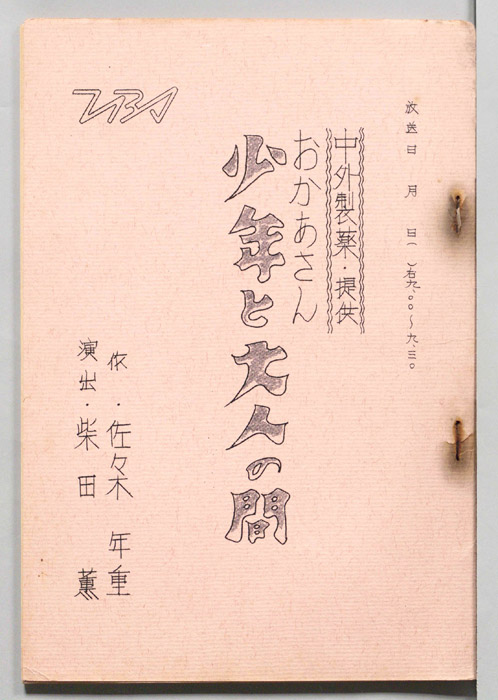 放送日 月 日( ) 九、〇〇～九、三〇
中外製薬・提供
おかあさん
少年と大人の間
TBS
依・佐々木 年重
演出・柴田 薫